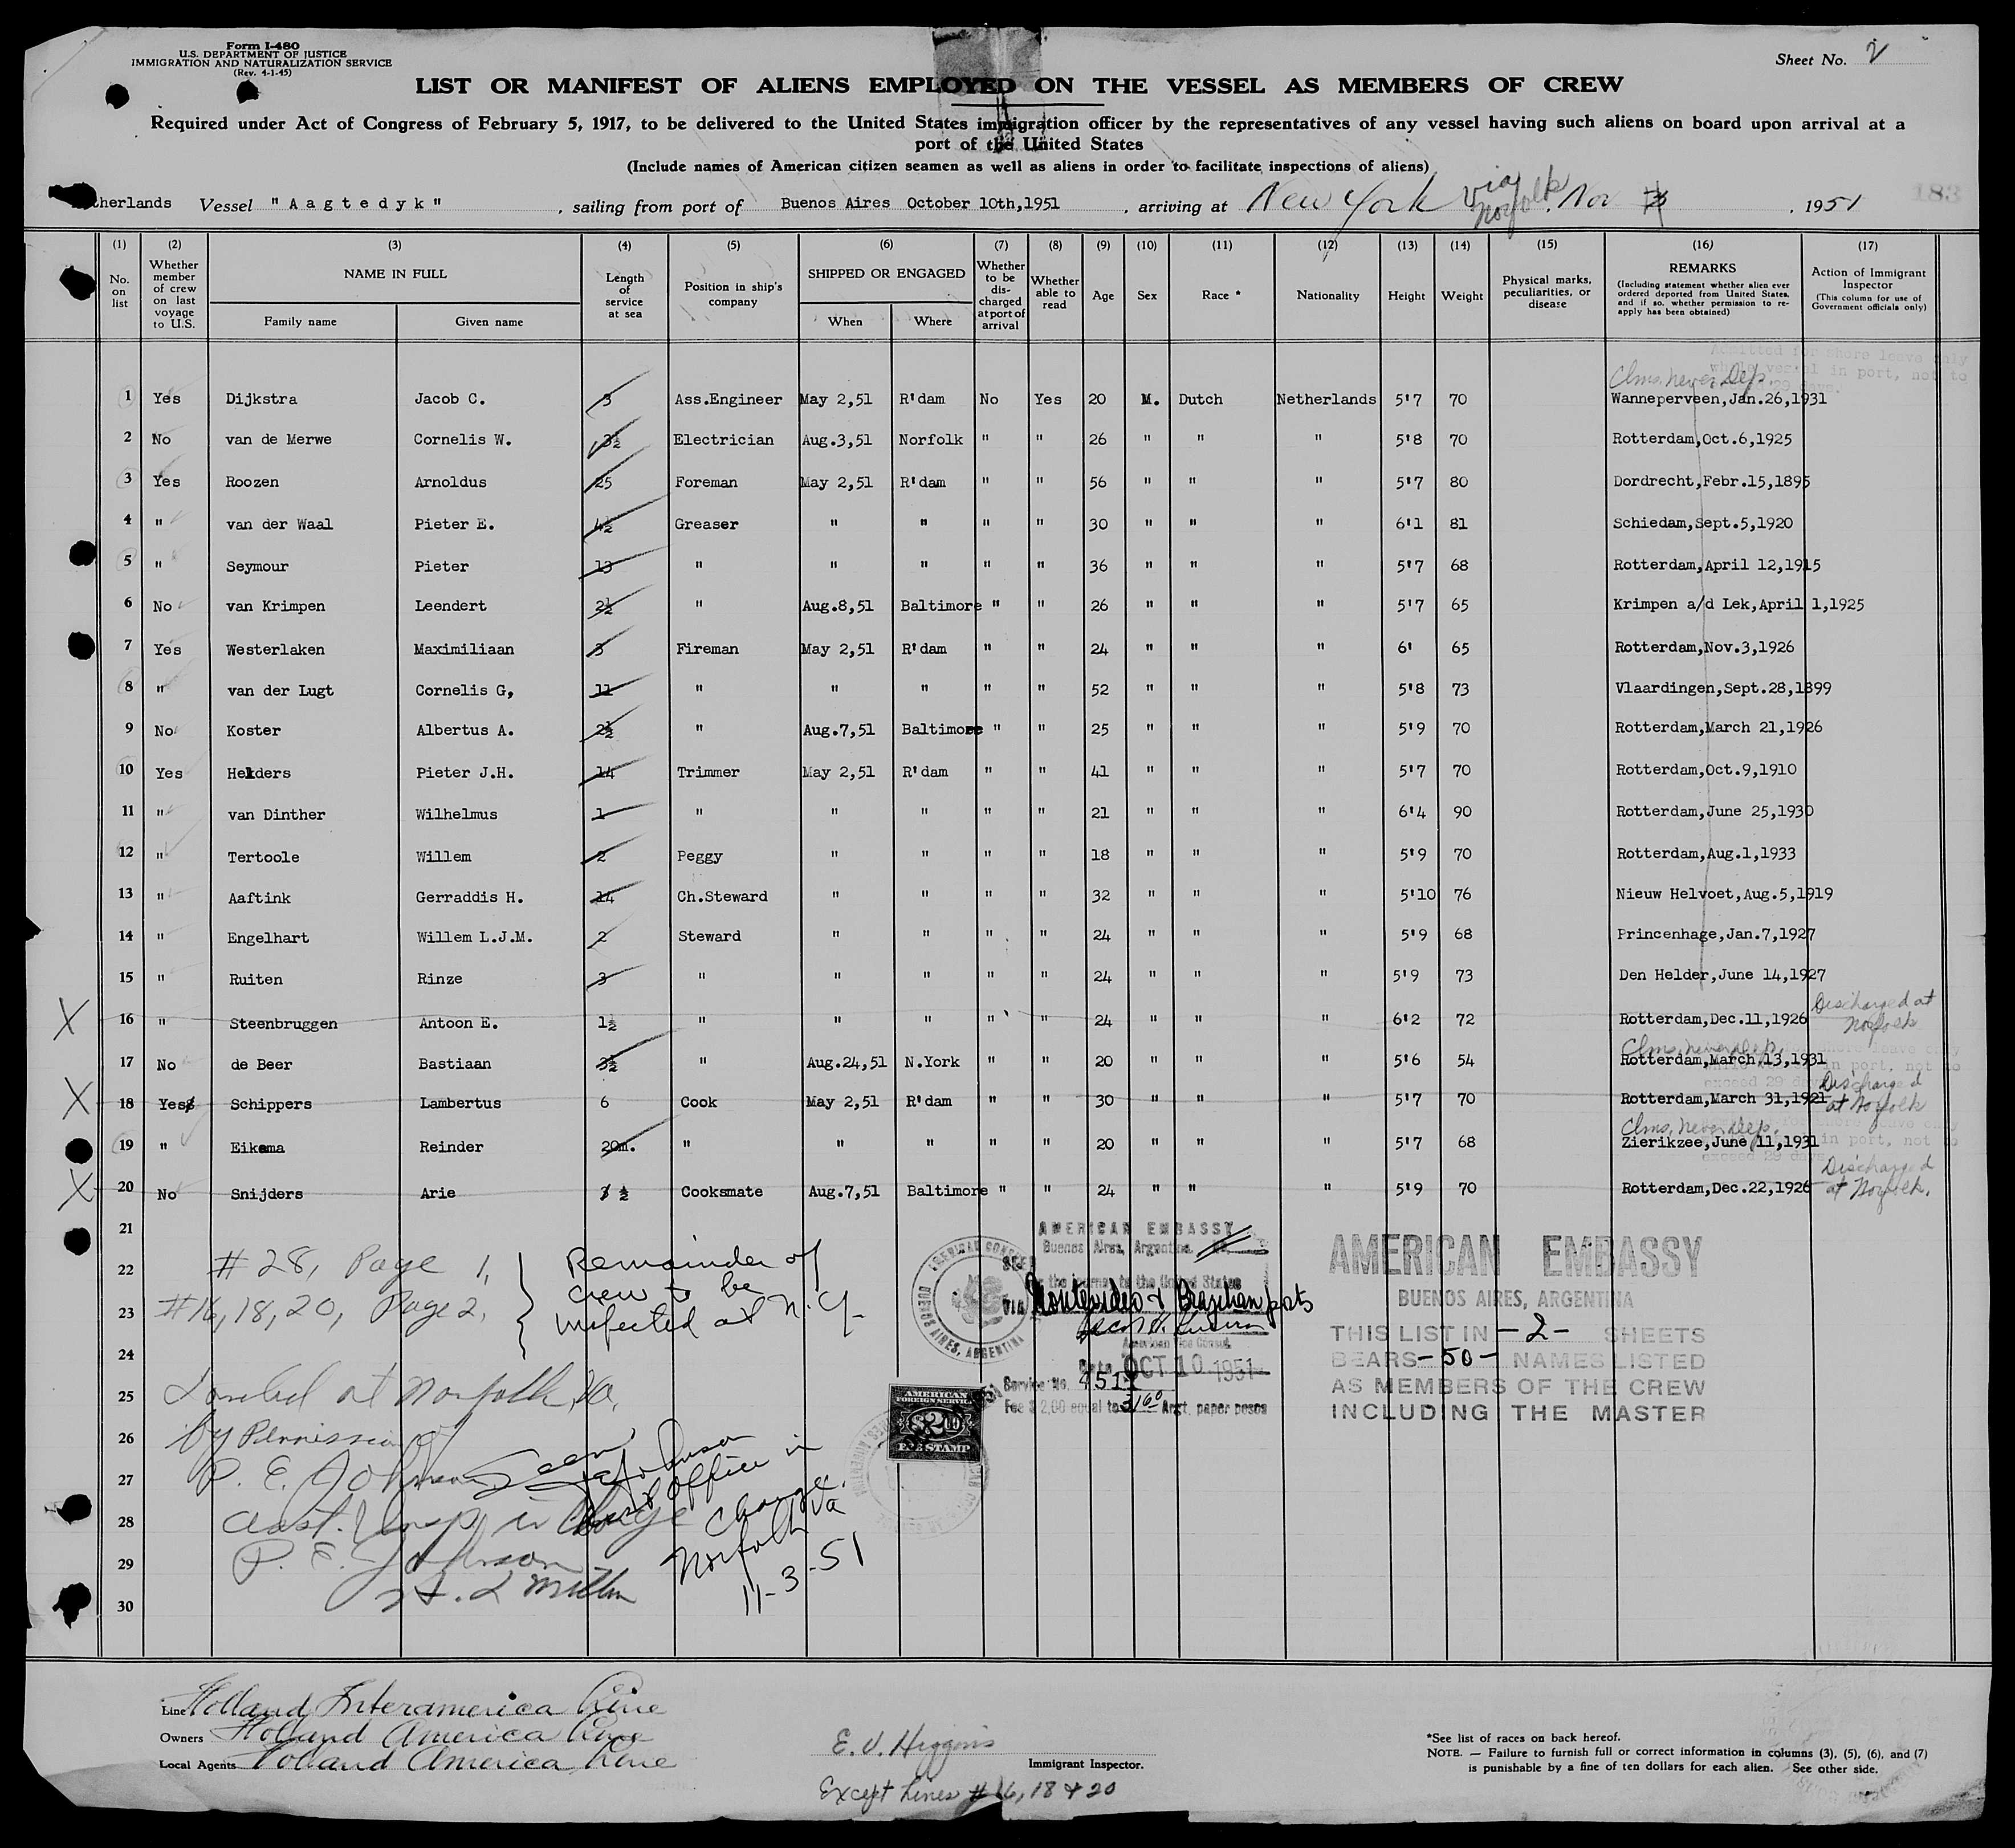 Form I-480
U.S. DEPARTMENT OF JUSTICE
IMMIGRATION AND NATURALIZATION SERVICE
(Rev. 4-1-45)
Sheet No. 2
LIST OR MANIFEST OF ALIENS EMPLOYED ON THE VESSEL AS MEMBERS OF CREW
Required under Act of Congress of February 5, 1917, to be delivered to the United States immigration officer by the representatives of any vessel having such aliens on board upon arrival at a
port of the United States
(Include names of American citizen seamen as well as aliens in order to facilitate inspections of aliens)
therlands Vessel "Aagtedyk", sailing from port of Buenos Aires October 10th,1951, arriving at New York via Norfolk, Nov , 1951 183
(1) (2) (3) (4) (5) (6) (7) (8) (9) (10) (11) (12) (13) (14) (15) (16) (17)
No. on list | Whether member of crew on last voyage to U.S. | NAME IN FULL | Family name | Given name | Length of service at sea | Position in ship's company | SHIPPED OR ENGAGED | When | Where | Whether to be discharged at port of arrival | Whether able to read | Age | Sex | Race * | Nationality | Height | Weight | Physical marks, peculiarities, or disease | REMARKS (Including statement whether alien ever ordered deported from United States, and if so, whether permission to re-apply has been obtained) | Action of Immigrant Inspector (This column for use of Government officials only)
Admitted for shore leave only
while vessel in port, not to
29 days.
Clms. never Dep.
1 Yes Dijkstra Jacob C. 3 Ass.Engineer May 2,51 R'dam No Yes 20 M. Dutch Netherlands 5'7 70 Wanneperveen,Jan.26,1931
2 No van de Merwe Cornelis W. 3½ Electrician Aug.3,51 Norfolk " " 26 " " " 5'8 70 Rotterdam,Oct.6,1925
3 Yes Roozen Arnoldus 25 Foreman May 2,51 R'dam " " 56 " " " 5'7 80 Dordrecht,Febr.15,1895
4 " van der Waal Pieter E. 4½ Greaser " " " " 30 " " " 6'1 81 Schiedam,Sept.5,1920
5 " Seymour Pieter 13 " " " " " 36 " " " 5'7 68 Rotterdam,April 12,1915
6 No van Krimpen Leendert 2½ " Aug.8,51 Baltimore " " 26 " " " 5'7 65 Krimpen a/d Lek,April 1,1925
7 Yes Westerlaken Maximiliaan 3 Fireman May 2,51 R'dam " " 24 " " " 6' 65 Rotterdam,Nov.3,1926
8 " van der Lugt Cornelis G, 11 " " " " " 52 " " " 5'8 73 Vlaardingen,Sept.28,1899
9 No Koster Albertus A. 2½ " Aug.7,51 Baltimore " " 25 " " " 5'9 70 Rotterdam,March 21,1926
10 Yes Helders Pieter J.H. 14 Trimmer May 2,51 R'dam " " 41 " " " 5'7 70 Rotterdam,Oct.9,1910
11 " van Dinther Wilhelmus 1 " " " " " 21 " " " 6'4 90 Rotterdam,June 25,1930
12 " Tertoole Willem 2 Peggy " " " " 18 " " " 5'9 70 Rotterdam,Aug.1,1933
13 " Aaftink Gerraddis H. 14 Ch.Steward " " " " 32 " " " 5'10 76 Nieuw Helvoet,Aug.5,1919
14 " Engelhart Willem L.J.M. 2 Steward " " " " 24 " " " 5'9 68 Princenhage,Jan.7,1927
15 " Ruiten Rinze 3 " " " " " 24 " " " 5'9 73 Den Helder,June 14,1927
X 16 " Steenbruggen Antoon E. 1½ " " " " " 24 " " " 6'2 72 Rotterdam,Dec.11,1926 Discharged at Norfolk
Clms. never Dep.
17 No de Beer Bastiaan 3½ " Aug.24,51 N.York " " 20 " " " 5'6 54 Rotterdam,March 13,1931
X 18 Yes Schippers Lambertus 6 Cook May 2,51 R'dam " " 30 " " " 5'7 70 Rotterdam,March 31,1921 Discharged at Norfolk
Clms. never dep.
19 " Eikema Reinder 20m. " " " " " 20 " " " 5'7 68 Zierikzee,June 11,1931
X 20 No Snijders Arie ½ Cooksmate Aug.7,51 Baltimore " " 24 " " " 5'9 70 Rotterdam,Dec.22,1926 Discharged at Norfolk.
21
22
23
24
25
26
27
28
29
30
#28, Page 1,
#16, 18, 20, Page 2,
Remainder of
crew to be
inspected at N.Y.
Landed at Norfolk, Va,
by Permission of
P. E. Johnson
Asst. Insp in Charge
P. E. Johnson
Seen
Johnson
Office in
Charge.
Norfolk Va
11-3-51
AMERICAN EMBASSY
Buenos Aires, Argentina
SEEN
the journey to the United States
VIA Montevideo & Brazilian ports
American Vice Consul
Date OCT 10 1951
Service No. 4511
Fee $2.00 equal to 31.60 Arg. paper pesos
AMERICAN CONSUL
BUENOS AIRES, ARGENTINA
AMERICAN
FOREIGN SERVICE
$2.00
FEE STAMP
AMERICAN EMBASSY
BUENOS AIRES, ARGENTINA
THIS LIST IN -2- SHEETS
BEARS -50- NAMES LISTED
AS MEMBERS OF THE CREW
INCLUDING THE MASTER
Line Holland Interamerica Line
Owners Holland America Line
Local Agents Holland America Line
E. V. Higgins
Immigrant Inspector.
Except Lines #16, 18 & 20
*See list of races on back hereof.
NOTE. — Failure to furnish full or correct information in columns (3), (5), (6), and (7)
is punishable by a fine of ten dollars for each alien. See other side.